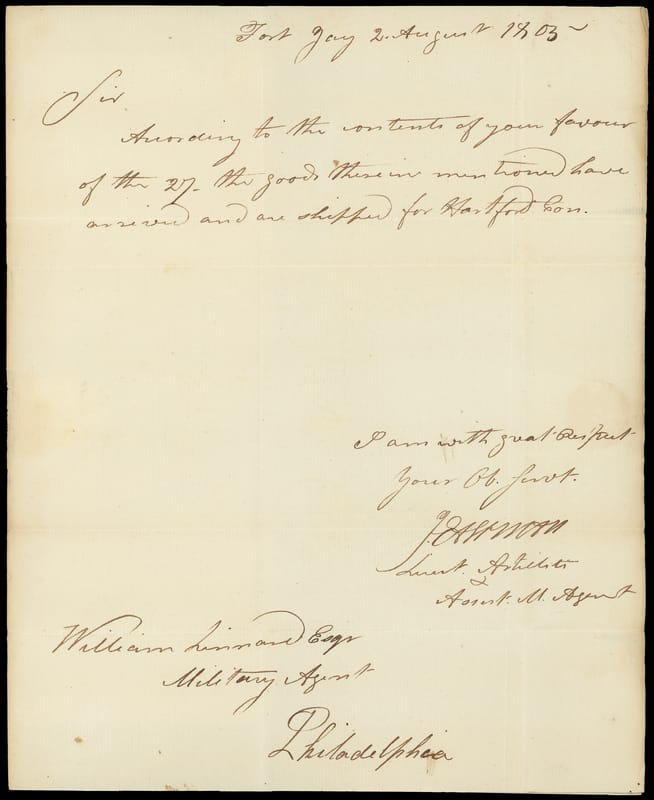 Fort Jay 2. August 1805
Sir
According to the contents of your favour
of the 27. the goods therein mentioned have
arrived and are shipped for Hartford Con.
I am with great Respect
Your Ob. Servt.
Lieut. Artillists
&
Assist. M. Agent
William Linnard Esqr
Military Agent
Philadelphia